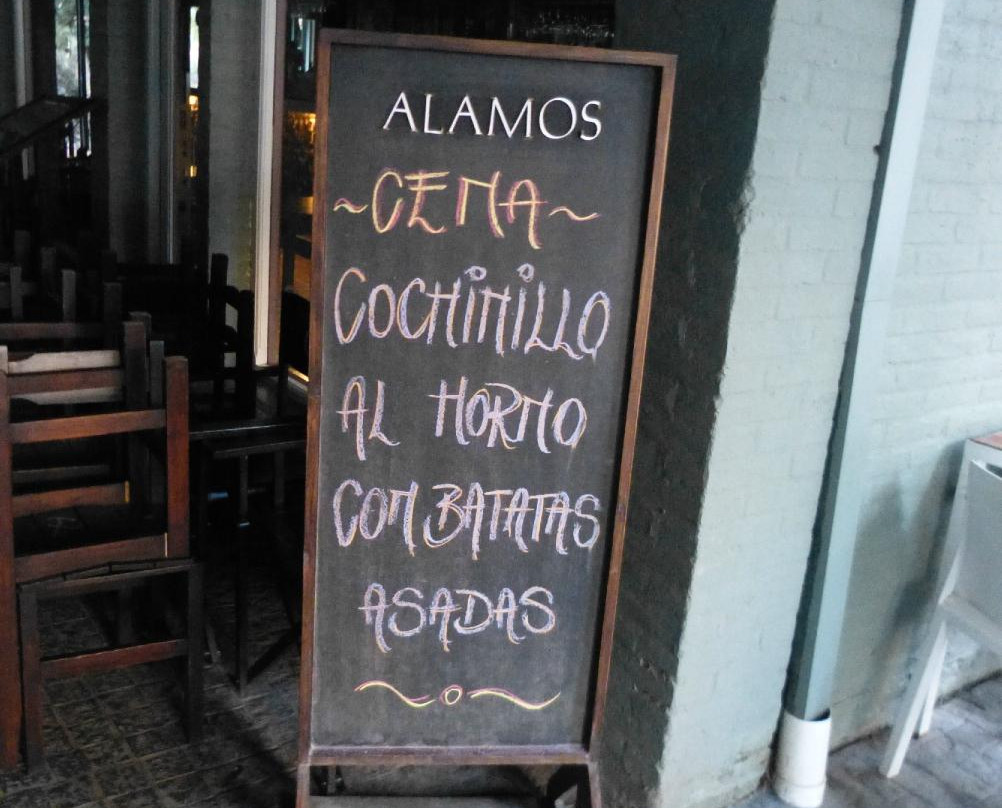 ALAMOS
~CENA~
COCHINILLO
AL HORNO
CON BATATAS
ASADAS